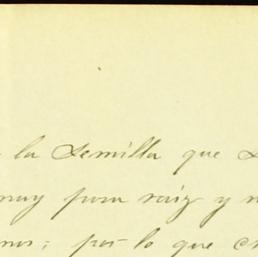 la Semilla que
muy pura raiz y
por lo que